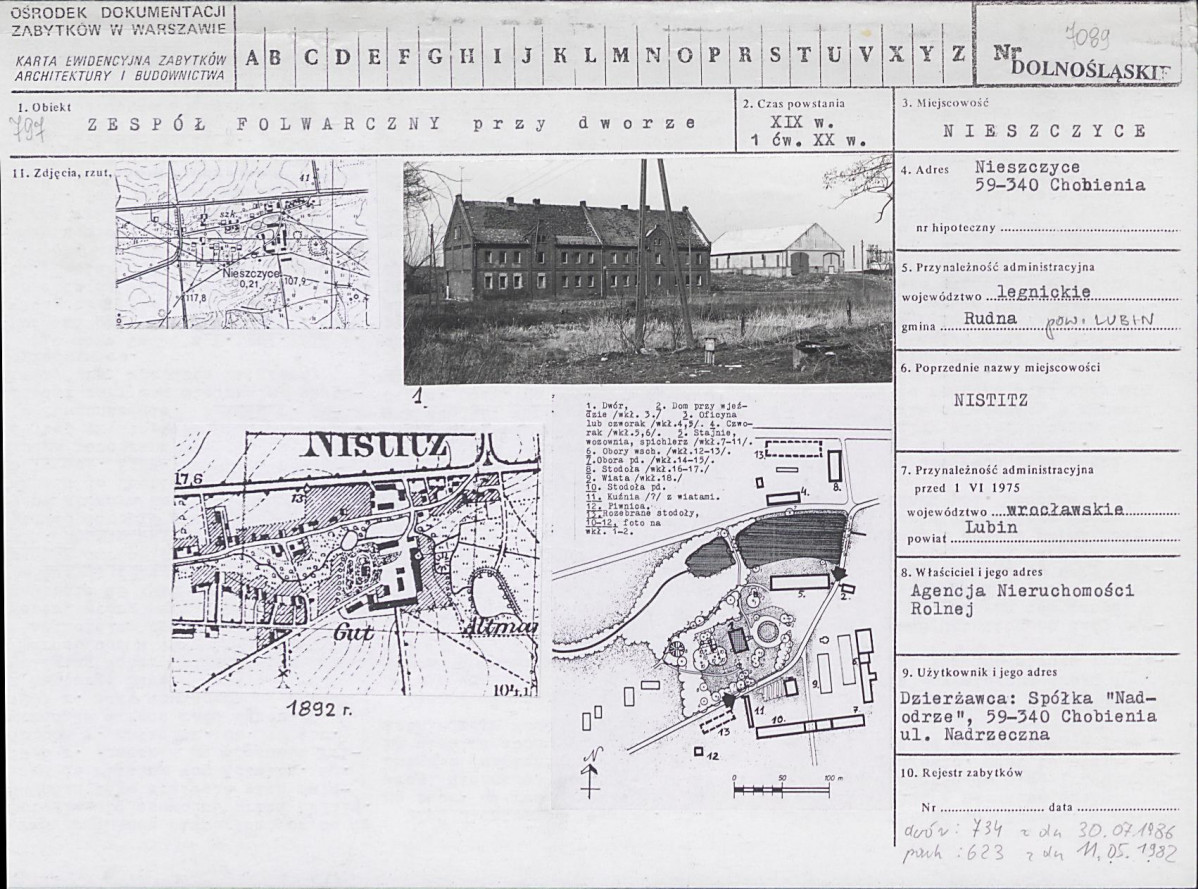 OŚRODEK DOKUMENTACJI
ZABYTKÓW W WARSZAWIE
KARTA EWIDENCYJNA ZABYTKÓW
ARCHITEKTURY I BUDOWNICTWA
A B C D E F G H I J K L M N O P R S T U V X Y Z
Nr
7089
DOLNOŚLĄSKIE
1. Obiekt
797
ZESPÓŁ FOLWARCZNY przy dworze
2. Czas powstania
XIX w.
1 ćw. XX w.
3. Miejscowość
NIESZCZYCE
4. Adres Nieszczyce
59-340 Chobienia
nr hipoteczny
5. Przynależność administracyjna
województwo legnickie
gmina Rudna pow. LUBIN
6. Poprzednie nazwy miejscowości
NISTITZ
7. Przynależność administracyjna
przed 1 VI 1975
województwo wrocławskie
powiat Lubin
8. Właściciel i jego adres
Agencja Nieruchomości
Rolnej
9. Użytkownik i jego adres
Dzierżawca: Spółka "Nad-
odrze", 59-340 Chobienia
ul. Nadrzeczna
10. Rejestr zabytków
Nr data
dwór: 734 z dn 30.07.1986
park: 623 z dn 11.05.1982
11. Zdjęcia, rzut,
41
szk.
2
Nieszczyce
0,21
107,9
117,8
1.
NISTITZ
17,6
13
Gut
Altmar
104,1
1892 r.
1. Dwór, 2. Dom przy wjeź-
dzie /wkł. 3./ 3. Oficyna
lub czworak /wkł.4,5/. 4. Czwo-
rak /wkł.5,6/. 5. Stajnie,
wozownia, spichlerz /wkł.7-11/.
6. Obory wsch. /wkł.12-13/.
7.Obora pd. /wkł.14-15/.
8. Stodoła /wkł.16-17./
9. Wiata /wkł.18./
10. Stodoła pd.
11. Kuźnia /?/ z wiatami.
12. Piwnica.
13.Rozebrane stodoły,
10-12. foto na
wkł. 1-2.
13.
4.
8.
5.
2.
1.
3.
9.
6.
11
10.
7.
13
12
N
0 50 100 m